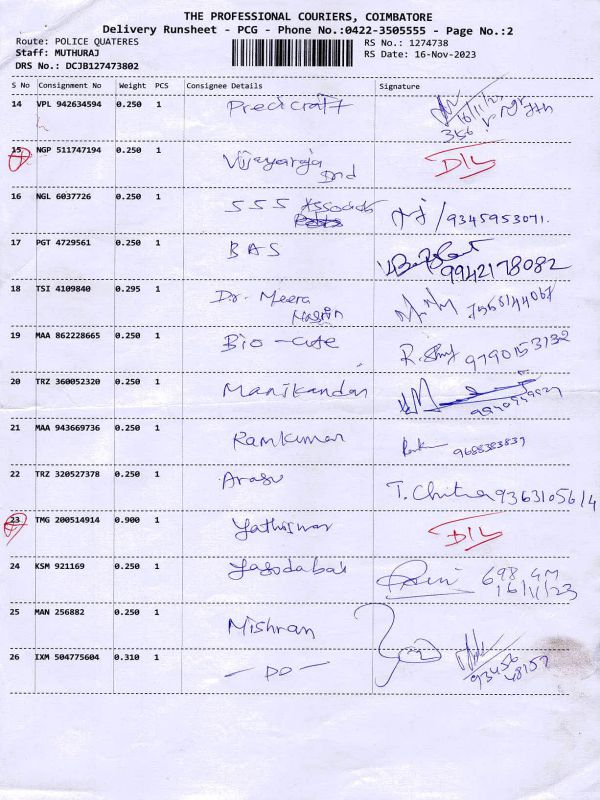 THE PROFESSIONAL COURIERS, COIMBATORE
Delivery Runsheet - PCG - Phone No.:0422-3505555 - Page No.:2
Route: POLICE QUATERES RS No.: 1274738
Staff: MUTHURAJ RS Date: 16-Nov-2023
DRS No.: DCJB127473802
S No Consignment No Weight PCS Consignee Details Signature
14 VPL 942634594 0.250 1 16/11/23
366
15 NGP 511747194 0.250 1 D/L
16 NGL 6037726 0.250 1 SSS Associate /9345953071.
17 PGT 4729561 0.250 1 BAS 9942178082
18 TSI 4109840 0.295 1 Dr. Meera
19 MAA 862228665 0.250 1 Bio-Cute 9790153132
20 TRZ 360052320 0.250 1 Manikandan
21 MAA 943669736 0.250 1 Ramkumar 9688383839
22 TRZ 320527378 0.250 1 Arasu T. Chitra 9363105614
23 TMG 200514914 0.900 1 D/L
24 KSM 921169 0.250 1 698 GM
16/11/23
25 MAN 256882 0.250 1 Mishran
26 IXM 504775604 0.310 1 — DO — 93456
48157